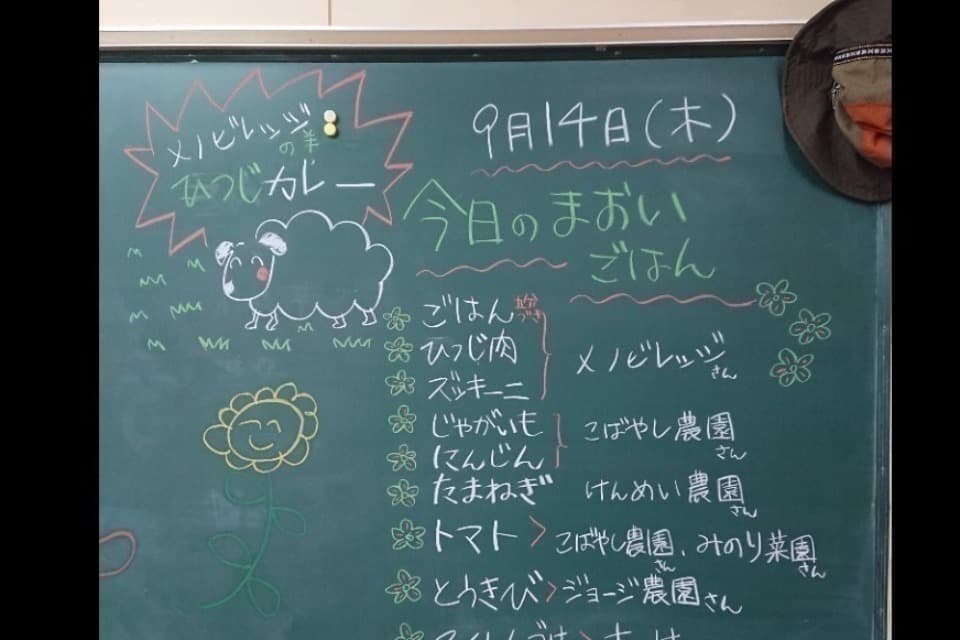 メノビレッジ
の羊
ひつじカレー
9月14日(木)
今日のまおい
ごはん
ごはん 七分づき
ひつじ肉
ズッキーニ
メノビレッジさん
じゃがいも
にんじん
こばやし農園さん
たまねぎ けんめい農園さん
トマト > こばやし農園さん、みのり菜園さん
とうきび > ジョージ農園さん